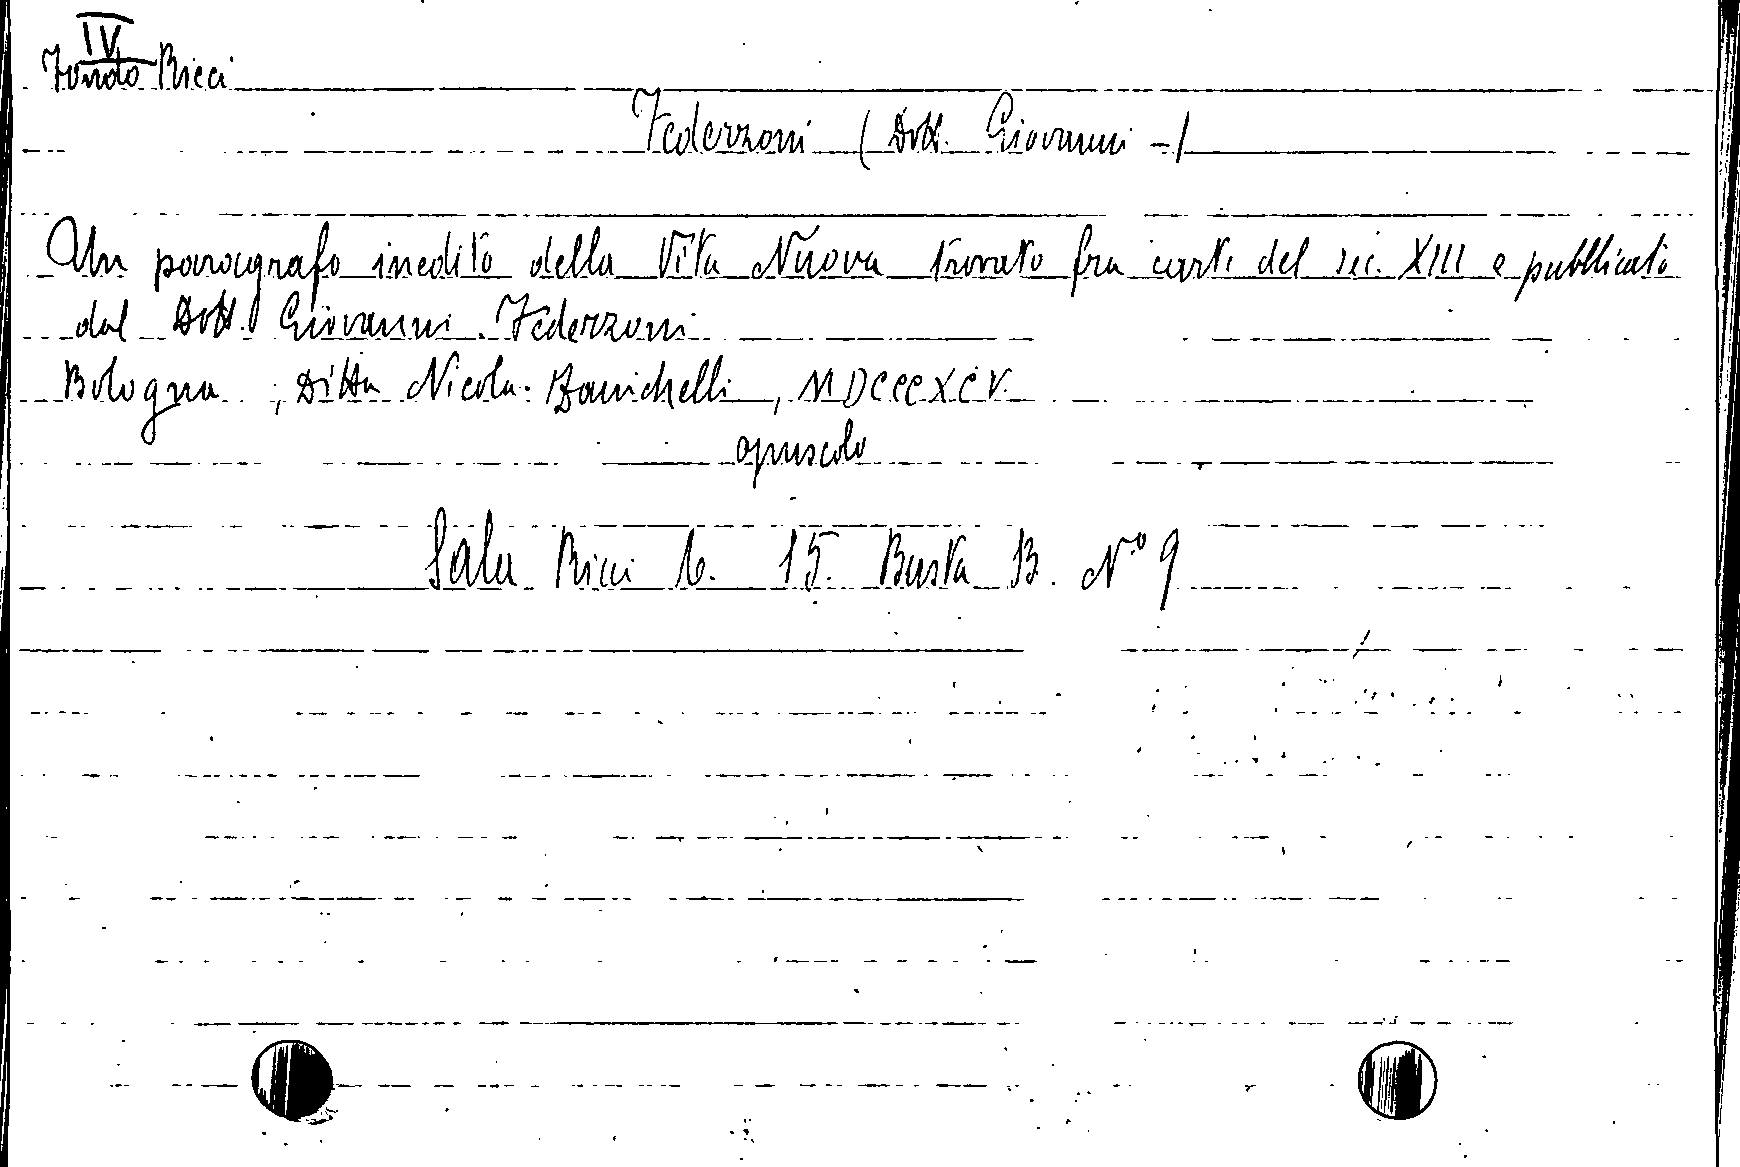 IV
Fondo Ricci
Federzoni (Dott. Giovanni -)
Un paragrafo inedito della Vita Nuova trovato fra carte del sec. XIII e pubblicato
dal Dott. Giovanni Federzoni
Bologna, Ditta Nicola Zanichelli, MDCCCXCV.
opuscolo
Sala Ricci 6. 15. Busta B. N° 9